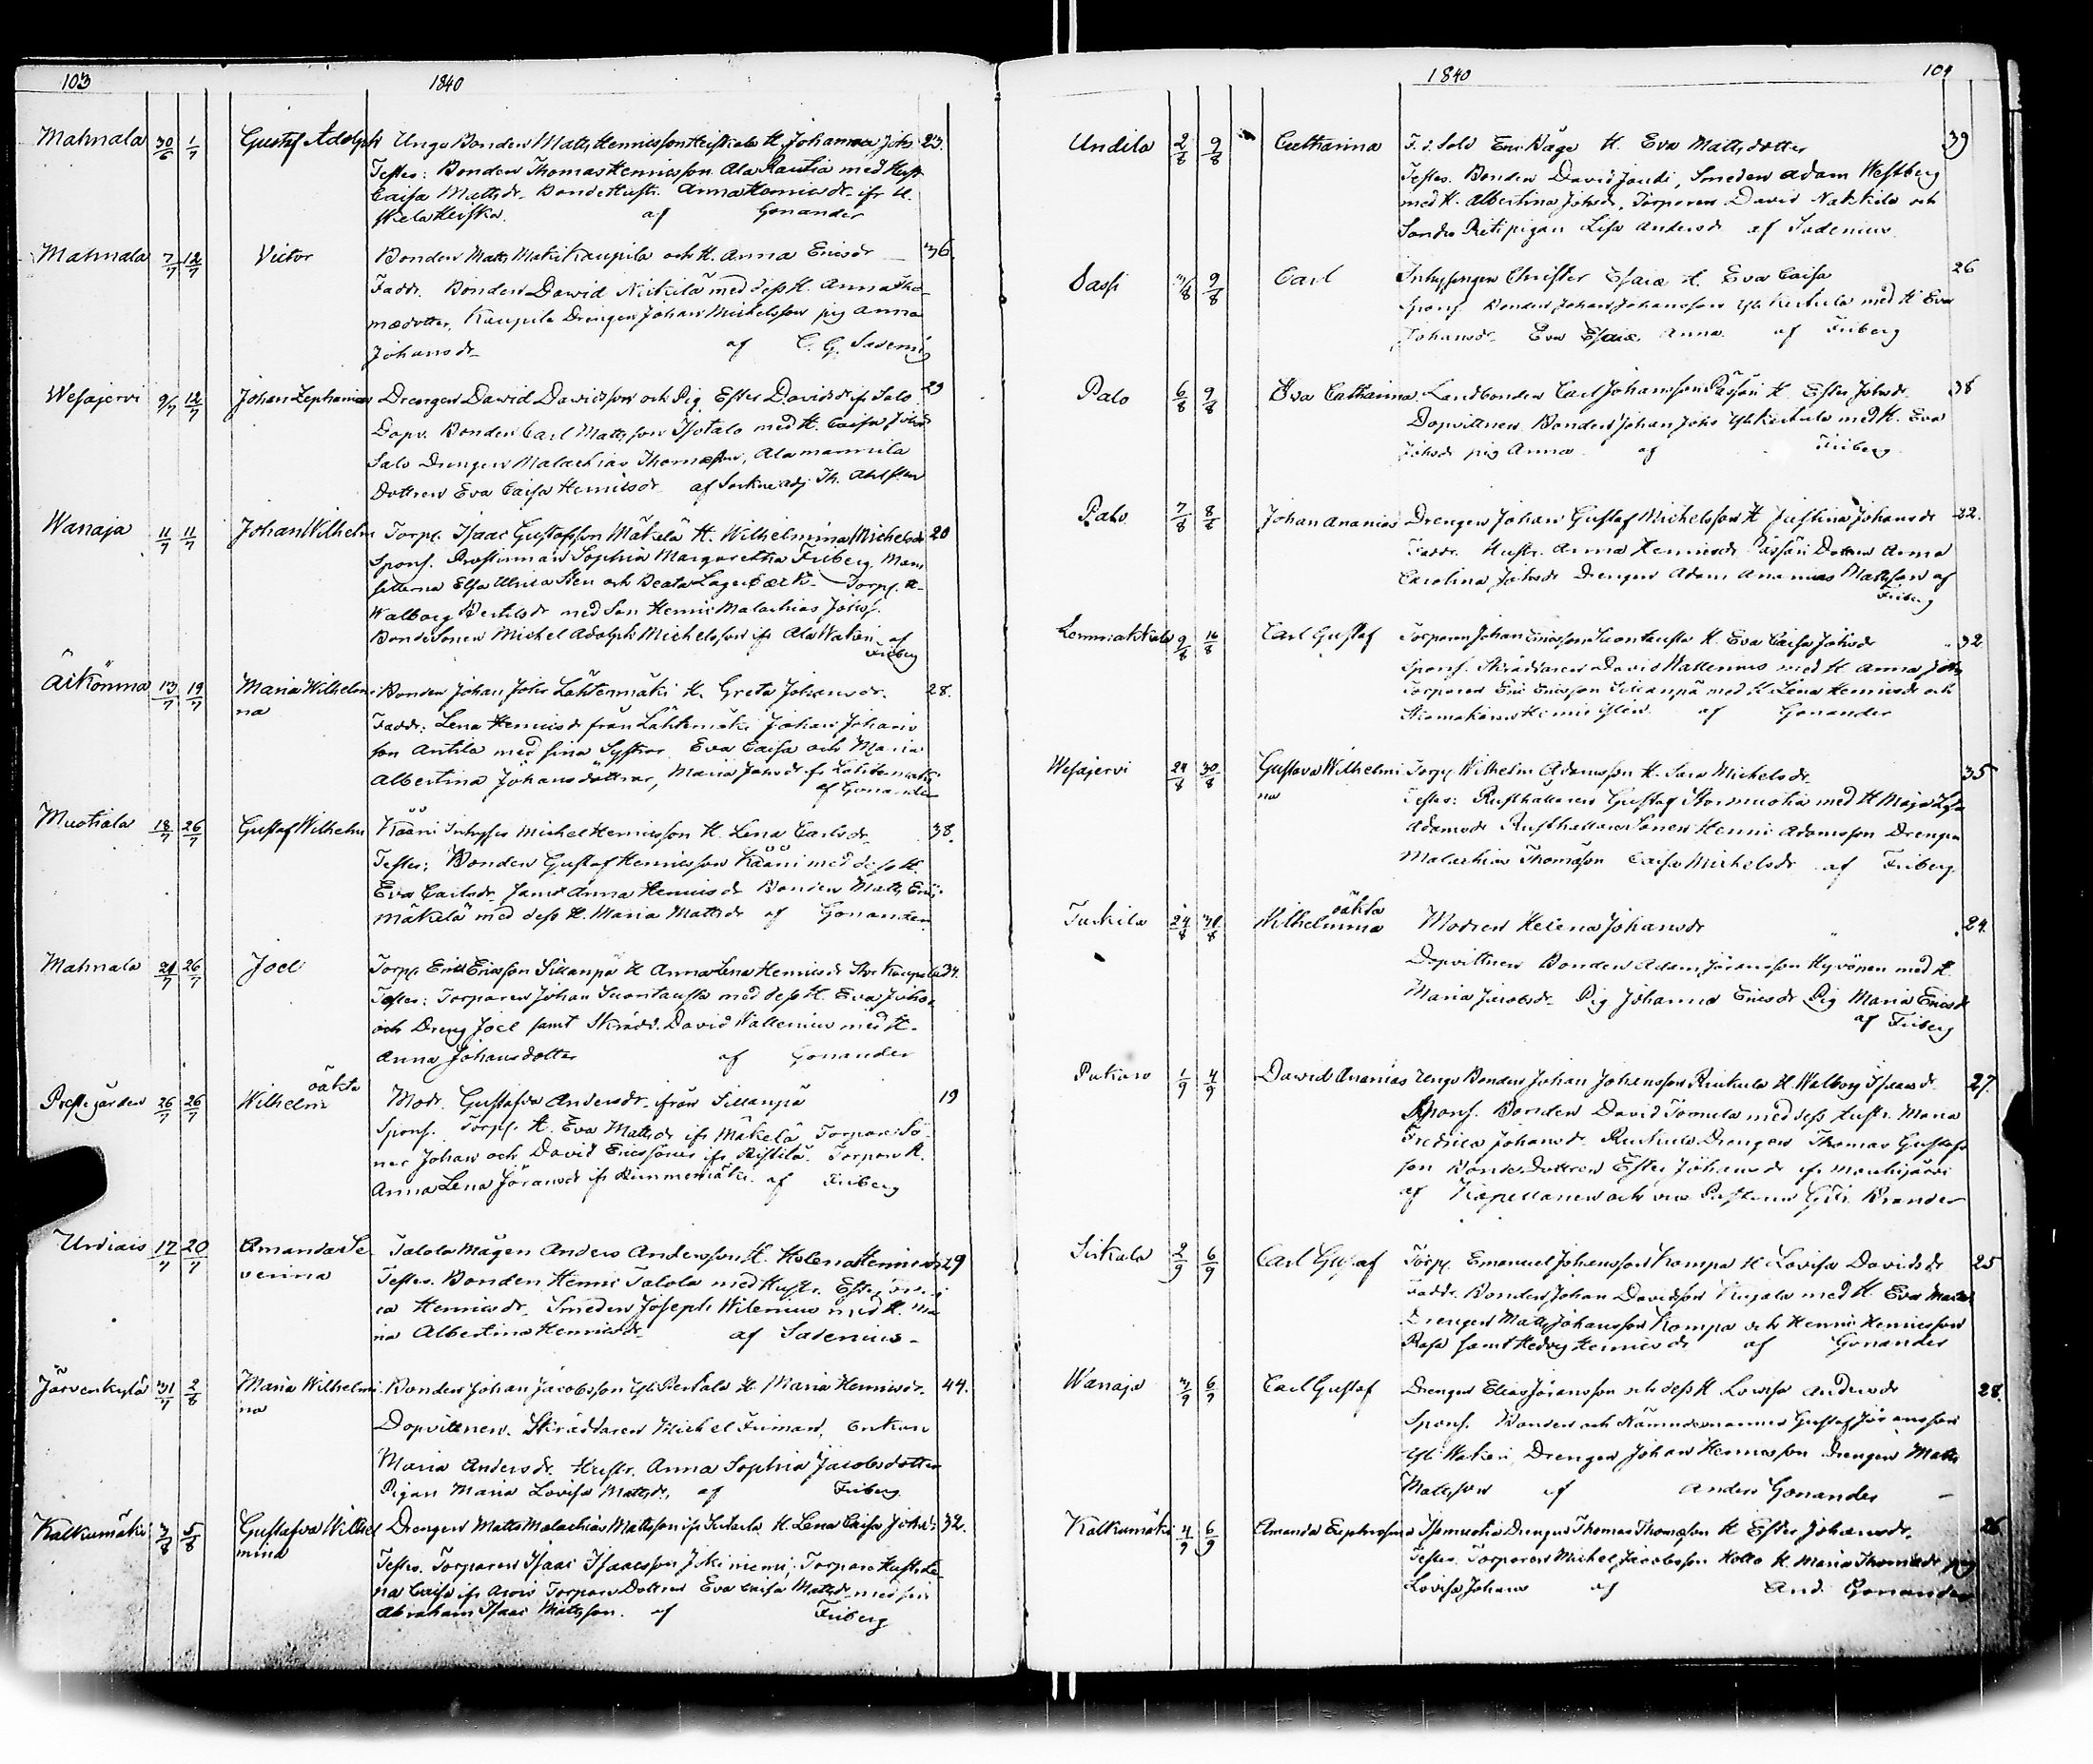 103
1840
Mahnala 30/6 1/7 Gustaf Adolph Unga Bonden Matts Henricsson Heiskala H. Johanna Johs 23.
Testes: Bonden Thomas Henricsson Ala Rautia med Hustr
Caisa Mattsdr. Bonde Hustr. Anna Henricsdr. ifr
af Gonander
Mahnala 7/7 12/7 Victor Bonden Matts Mäki Kaupila och H. Anna Ericsdr 36.
Faddr. Bonden David Nickilä med dess H. Anna Tho-
mædotter, Kaupila Drengen Johan Michelsson pig Anna
Johansdr af C. G. Sadenius
Wesajervi 9/7 12/7 Johan Zephanias Drengen David Davidsson och Pig Ester Davidsdr ifr Salo 29
Dopv. Bonden Carl Mattsson Isotalo med H. Caisa Johsdr
Salo Drengen Malachias Thomæson, Alamannila
Dottren Eva Caisa Henricsdr af Sockne adj. Th. Ahlsten
Wanaja 11/7 11/7 Johan Wilhelm Torp. Isaac Gustafsson Mäkelä H. Wilhelmina Michelsdr 20
Spons. Prostinnan Sophia Margaretha Friberg Mam
sellerna Elsa Ulrica Sten och Beata Lagerbærk Torp. H.
Walborg Bertilsdr med Son Henric Malachias Johss.
Bonde Sonen Michel Adolph Michelsson ifr Ala Wakeri af
Friberg
Äikönma 13/7 19/7 Maria Wilhelmi Bonden Johan Johs Lähtenmäki H. Greta Johansdr. 28.
na
Faddr: Lena Henricsdr från Lähtemäki Johan Johans
son Antila med sina Systrar Eva Caisa och Maria
Albertina Johansdöttrar, Maria Johsdr fr Lähtenmäki
af Gonander
Muotiala 18/7 26/7 Gustaf Wilhelm Kääni Inhyses Michel Henricsson H. Lena Carlsdr 38.
Testes: Bonden Gustaf Henricsson Kääni med dess H.
Eva Carlsdr samt Anna Henricsdr Bonden Matts
mäkelä med dess H. Maria Mattsdr af Gonander
Mahnala 24/7 26/7 Joel Torp. Eric Ericsson Sillanpä H Anna Lena Henricsdr Stor Kaupila 34.
Testes: Torparen Johan Suontausta med dess H. Eva Johsdr
och Dreng Joel samt Skrädd. David Wallenius med H.
Anna Johansdotter af Gonander
Prestgården 26/7 26/7 Wilhelm oäkta Modr. Gustafva Andersdr. från Sillanpä 19
Spons. Torp. H. Eva Mattsdr ifr Mäkelä Torpare Sö-
ner Johan och David Ericssöner ifr Ristilä Torpare H.
Anna Lena Göransdr ifr Rimmenmäki af Friberg
Urdiais 17/7 20/7 Amanda Se- Talola Mågen Anders Andersson H. Helena Henricsdr 29
verina
Testes. Bonden Henric Talola med Hustr. Ester
ca Henricsdr. Smeden Joseph Wilenius med H. Ma
ria Albertina Henricsdr af Sadenius
Järvenkylä 31/7 2/8 Maria Wilhelmi Bonden Johan Jacobsson Yli Pertala H. Maria Henricsdr. 44.
na
Dopvittnen. Skräddaren Michel Friman, Enkan
Maria Andersdr. Hustr. Anna Sophia Jacobsdotter
Pigan Maria Lovisa Mattsdr, af Friberg
Kalkunmäki 3/8 5/8 Gustafva Wilhel Drengen Matts Malachias Mattsson ifr H. Lena Caisa Johsdr 32.
mina
Testes. Torparen Isaac Isaacsson Jokiniemi; Torpare Hustr. Le-
na Caisa ifr Torpare Dottren Eva Caisa Mattsdr med
Abraham Isaac Mattsson. af Friberg
1840
104
Undila 2/8 9/8 Catharina F. d. Sold Eric Båge H. Eva Mattsdotter 39
Testes. Bonden David Joudi, Smeden Adam Westberg
med H. Albertina Johsdr, Torparen David Nakkila och
Pigan Lisa Andersdr af Sadenius
Sassi 9/8 Carl Inhysingen Christer Esaiæ H. Eva Caisa 26
Spons. Bonden Johan Johansson Yli Kirkula med H Eva
Johansdr. Eva Esaiæ Anna af Friberg
Palo 6/8 9/8 Eva Catharina Landbonden Carl Johansson Pässäri H. Ester Johsdr. 38
Dopvittnen. Bonden Johan Johs Yli Kirkula med H. Eva
Johsdr pig Anna af Friberg
Palo 7/8 8/8 Johan Ananias Drengen Johan Gustaf Michelsson H Justina Johansdr 32.
Faddr. Hustr. Anna Henricsdr Pässäri Dottren Anna
Carolina Johsdr Drengen Adam Ananias Mattsson af
Friberg
9/8 16/8 Carl Gustaf Torparen Johan Ericsson Suontausta H. Eva Caisa Johsdr 32
Spons. Skräddaren David Wallenius med H Anna Joh
Torparen Eric Ericsson Sillanpä med H. Lena Henricsdr och
Skomakaren Henric af Gonander
Wesajervi 29/8 30/8 Gustava Wilhelmi Torp. Wilhelm Adamsson H. Sara Michelsdr 35
na
Testes: Rusthållaren Gustaf Stormuotia med H Maja Lisa
Adamsdr Rusthållare Sonen Henric Adamsson Drengen
Malachias Thomæson Caisa Michelsdr af Friberg
Turkila 24/8 30/8 Wilhelmina oäkta Modren Helena Johansdr 24.
Dopvittnen Bonden Adam Göransson Hyvönen med H
Maria Jacobsdr Pig Johanna Ericsdr Pig Maria Ericsdr
af Friberg
1/9 4/9 David Ananias Unga Bonden Johan Johansson Riukula H Walborg Isaacsdr 27.
Spons. Bonden David Tornula med dess hustr. Maria
Fredrica Johansdr Drengen Thomas Gustafs
son Bonde Dottren Ester Johansdr ifr
af Kapellanen och vice Pastoren Brander
Sirkala 2/9 6/9 Carl Gustaf Torp. Emanuel Johansson Kompa H Lovisa Davidsdr 25
Faddr. Bonden Johan Davidsson med H. Eva
Drengen Matts Johansson Kompa och Henric Henricsson
samt Hedvig Henricsdr af Gonander
Wanaja 3/9 6/9 Carl Gustaf Drengen Elias Göransson och dess H Lovisa Andersdr 28.
Spons. Bonden och Nämndemannen Gustaf Göransson
Yli Wakeri, Drengen Johan Henricsson Drengen Matts
Mattsson af Anders Gonander
Kalkunmäki 4/9 6/9 Amanda Euphrosina Isomuotia Drengen Thomas Thomæson H Ester Johansdr. 26
Testes. Torparen Michel Jacobsson Hollo H. Maria Thomædr pig
Lovisa Johans af And. Gonander